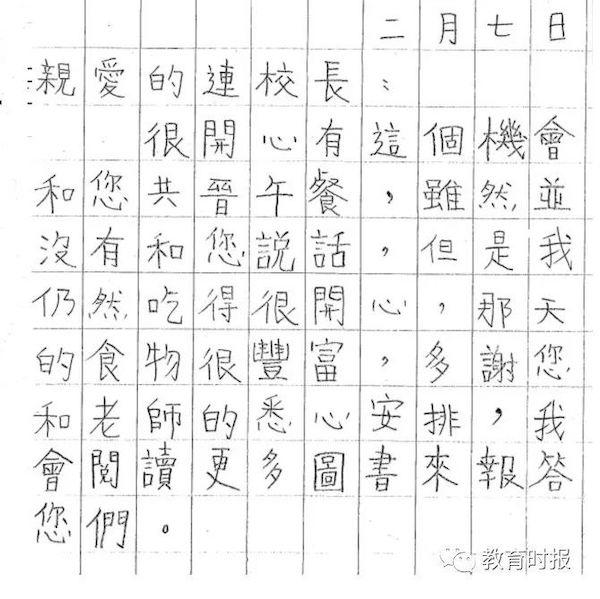 二月七日
親愛的連校長：
很開心有這個機會
和您共晉午餐，雖然並
沒有和您說話，但是我
仍然吃得很開心，那天
的食物很豐富，多謝您
和老師的悉心安排，我
會閱讀更多圖書來報答
您們。
教育时报